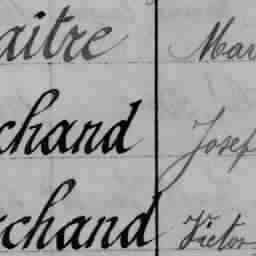 aitre Mar
chand Josef
chand Victor